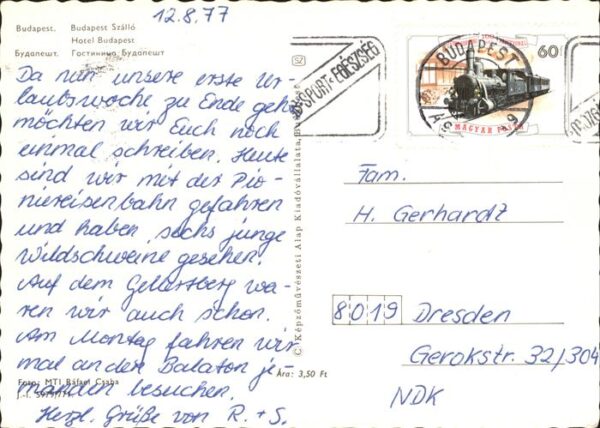 12.8.77
Budapest. Budapest Szálló
Hotel Budapest
Будапешт. Гостиница Будапешт
Da nun unsere erste Ur-
laubswoche zu Ende geht
möchten wir Euch noch
einmal schreiben. Heute
sind wir mit der Pio-
niereisenbahn gefahren
und haben sechs junge
Wildschweine gesehen.
Auf dem Gellertberg wa-
ren wir auch schon.
Am Montag fahren wir
mal an den Balaton je-
manden besuchen.
Herzl. Grüße von R. + S.
Foto: MTI Ráfael Csaba
© Képzőművészeti Alap Kiadóvállalata, Budapest
Ára: 3,50 Ft
SPORT-EGÉSZSÉG
BUDAPEST
60
MAGYAR POSTA
Fam.
H. Gerhardt
8019 Dresden
Gerokstr. 32/304
NDK